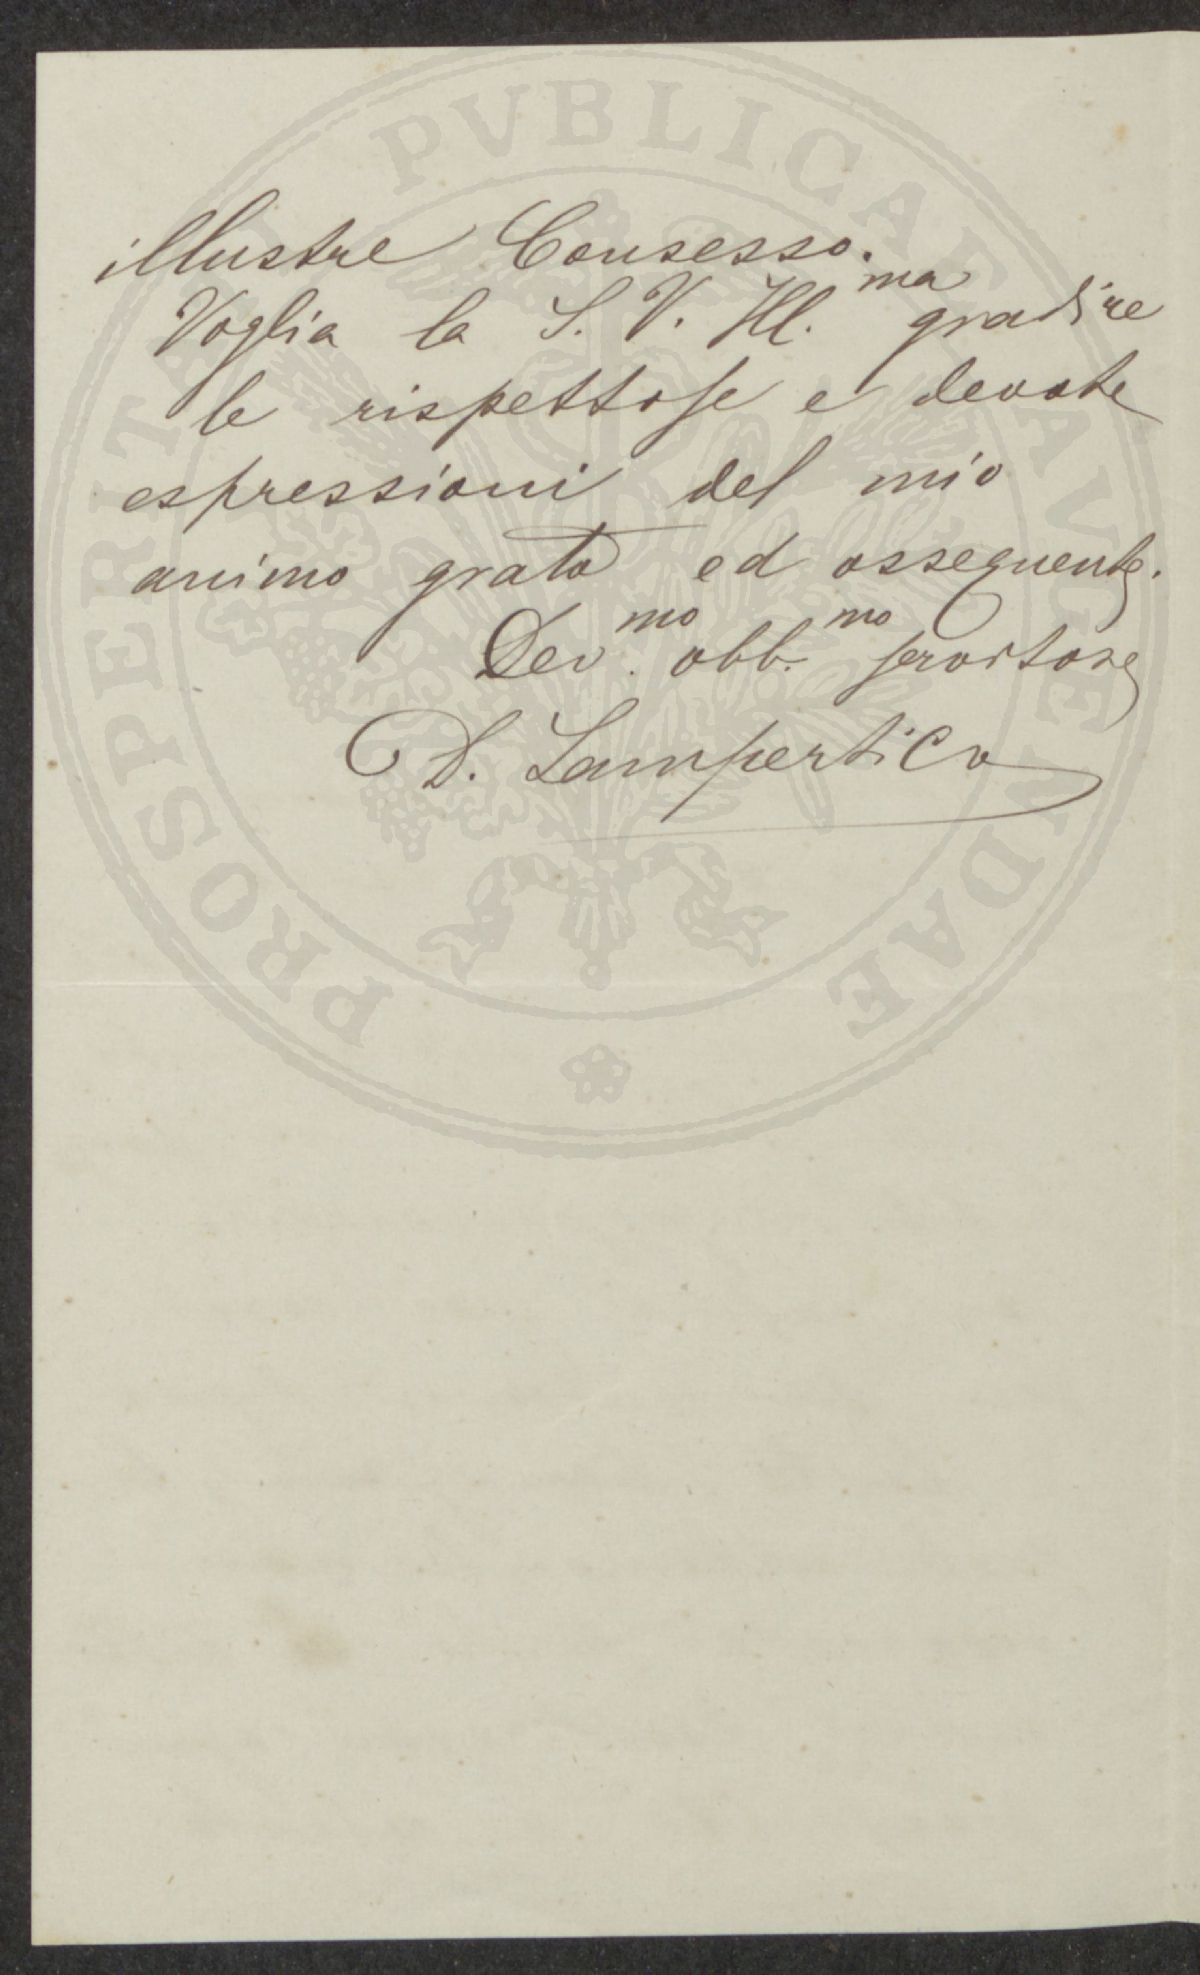 illustre Consesso.
Voglia la S. V. Ill.ma gradire
le rispettose e devote
espressioni del mio
animo grato ed ossequente.
Dev.mo obb.mo servitore
D. Lampertico
PROSPERITATI PVBLICAE AVGENDAE